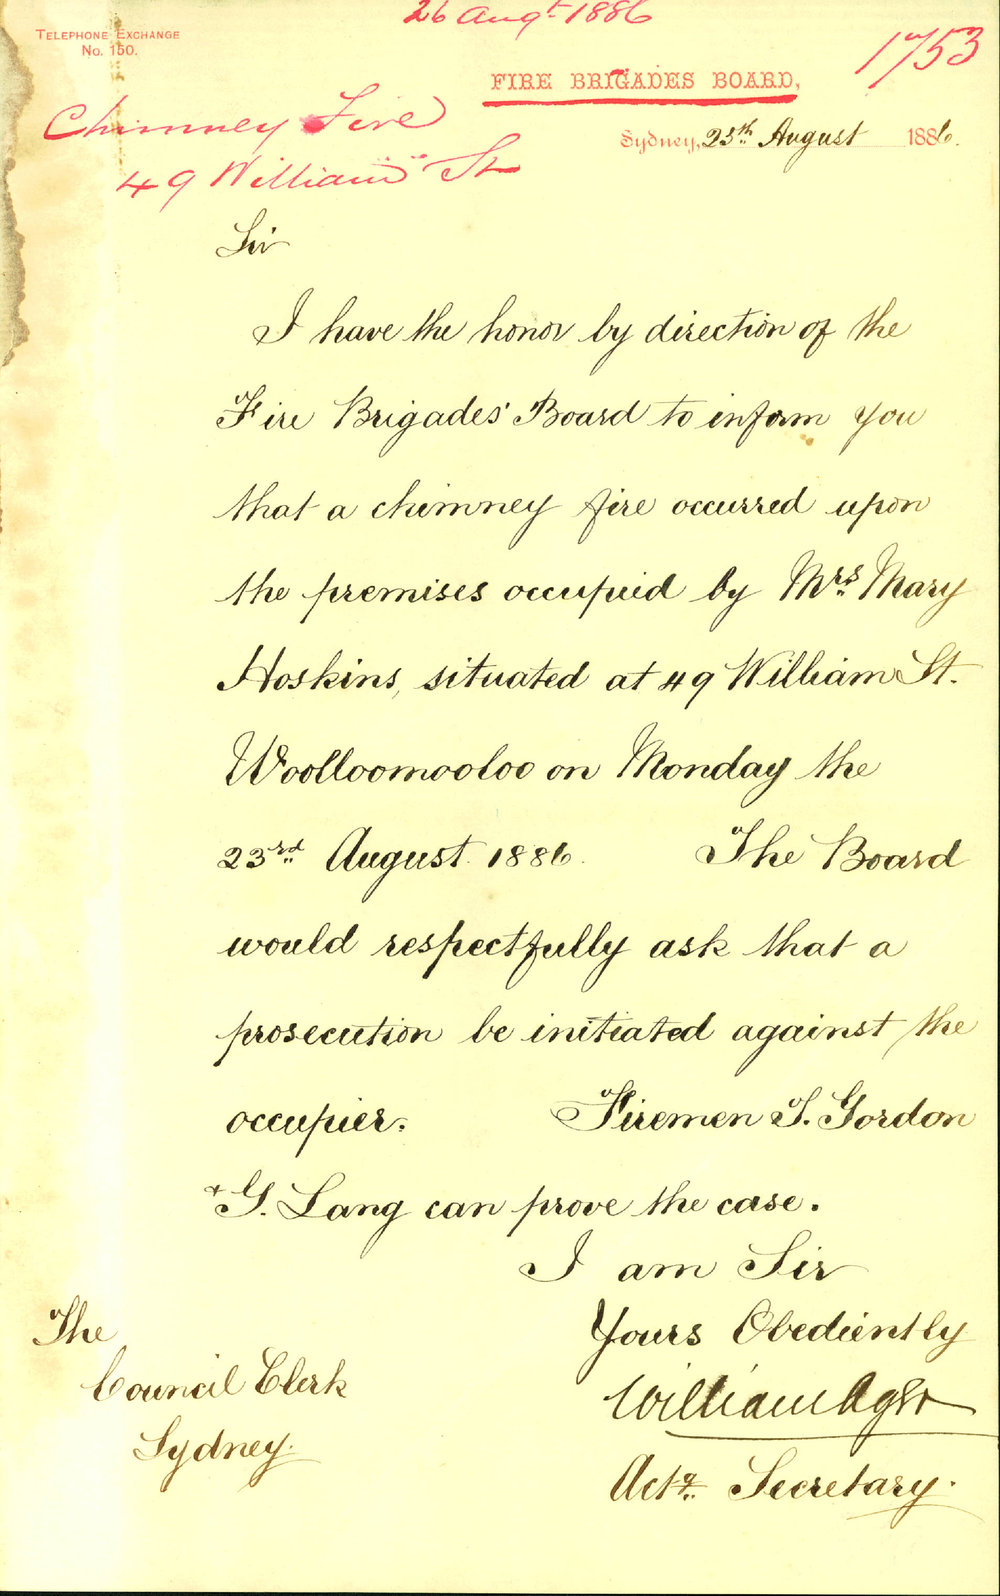 26 Augt 1886
TELEPHONE EXCHANGE
No. 150.
1753
FIRE BRIGADES BOARD,
Chimney Fire
49 William St
Sydney, 25th August 1886.
Sir
I have the honor by direction of the
Fire Brigades' Board to inform you
that a chimney fire occurred upon
the premises occupied by Mrs Mary
Hoskins, situated at 49 William St.
Woolloomooloo on Monday the
23rd August 1886. The Board
would respectfully ask that a
prosecution be initiated against the
occupier. Firemen T. Gordon
+ G. Lang can prove the case.
I am Sir
Yours Obediently
William
Actg. Secretary.
The
Council Clerk
Sydney.